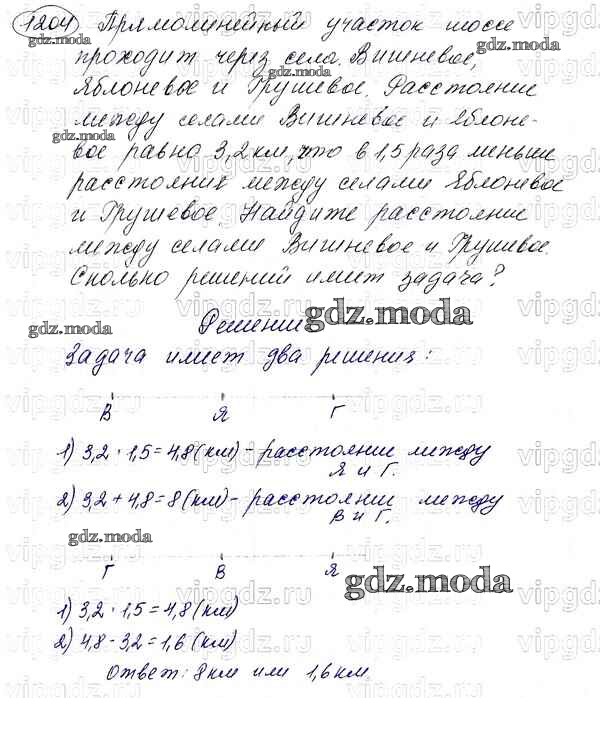 1204 Прямолинейный участок шоссе
проходит через села Вишневое,
Яблоневое и Грушевое. Расстояние
между селами Вишневое и Яблоне-
вое равно 3,2 км, что в 1,5 раза меньше
расстояния между селами Яблоневое
и Грушевое. Найдите расстояние
между селами Вишневое и Грушевое.
Сколько решений имеет задача?
Решение
Задача имеет два решения:
В Я Г
1) 3,2 · 1,5 = 4,8 (км) - расстояние между
Я и Г.
2) 3,2 + 4,8 = 8 (км) - расстояние между
В и Г.
Г В Я
1) 3,2 · 1,5 = 4,8 (км)
2) 4,8 - 3,2 = 1,6 (км)
Ответ: 8 км или 1,6 км.
gdz.moda
gdz.moda
gdz.moda
gdz.moda
gdz.moda
gdz.moda
gdz.moda
gdz.moda
vipgdz.ru